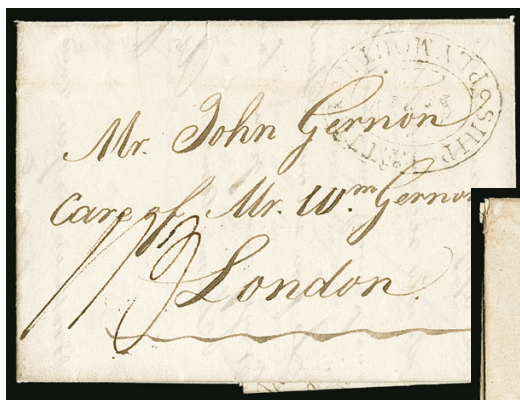 PLYMOUTH SHIP LETTER
Mr. John Gernon
Care of Mr. Wm. Gernon
London.
1/3